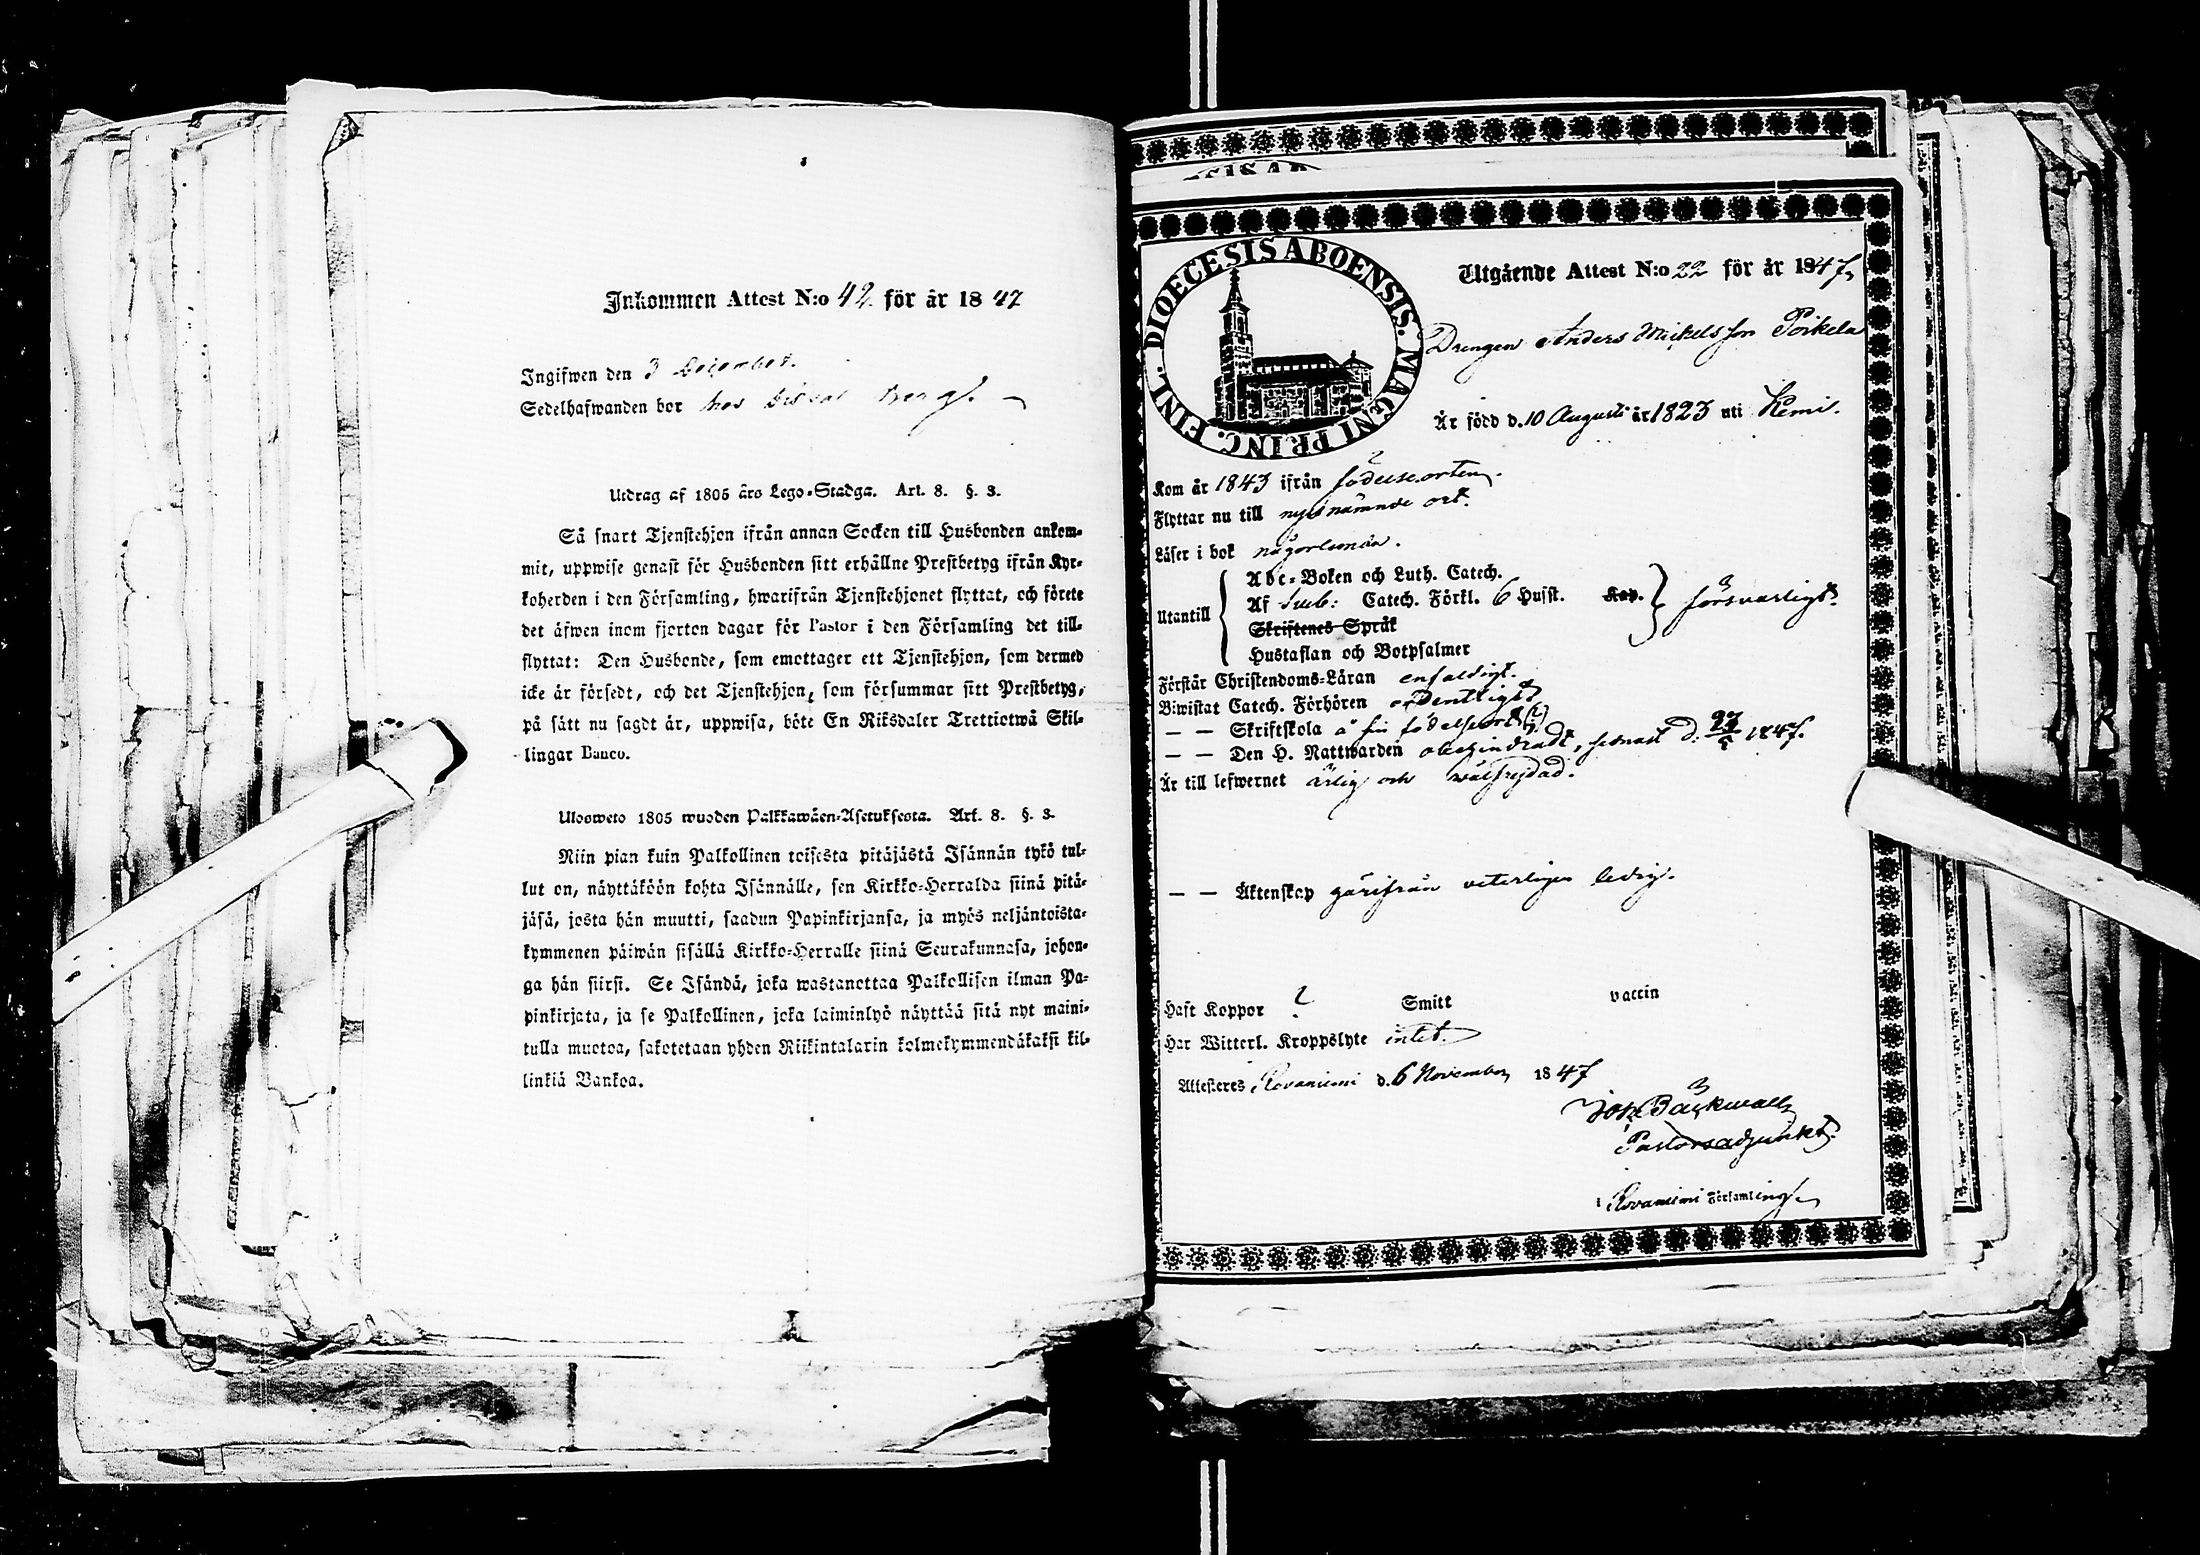 Inkommen Attest N:o 42. för år 1847
Ingifwen den 3 December.
Sedelhafwanden bor hos
Utdrag af 1805 års Lego-Stadga. Art. 8. §. 3.
Så snart Tjenstehjon ifrån annan Socken till Husbonden ankom-
mit, uppwise genast för Husbonden sitt erhållne Prestbetyg ifrån Kyr-
koherden i den Församling, hwarifrån Tjenstehjonet flyttat, och förete
det äfwen inom fjorton dagar för Pastor i den Församling det till-
flyttat: Den Husbonde, som emottager ett Tjenstehjon, som dermed
icke är försedt, och det Tjenstehjon, som försummar sitt Prestbetyg,
på sätt nu sagdt är, uppwisa, böte En Riksdaler Trettiotwå Skil-
lingar Banco.
Ulosweto 1805 wuoden Palkkawäen-Asetuksesta. Art. 8. §. 3.
Niin pian kuin Palkollinen toisesta pitäjästä Isännän tykö tul-
lut on, näyttäköön kohta Isännälle, sen Kirkko-Herralda siinä pitä-
jäsä, josta hän muutti, saadun Papinkirjansa, ja myös neljäntoista-
kymmenen päiwän sisällä Kirkko-Herralle siinä Seurakunnasa, johon-
ga hän siirsi. Se Isändä, joka wastanottaa Palkollisen ilman Pa-
pinkirjata, ja se Palkollinen, joka laiminlyö näyttää sitä nyt maini-
tulla muotoa, sakotetaan yhden Riikintalarin kolmekymmendäkaksi kil-
linkiä Bankoa.
DIOECESIS ABOENSIS. MAGNI PRINC. FINL.
Utgående Attest N:o 22 för år 1847,
Drengen Anders Mickelsson Poikela
Är född d. 10 Augusti år 1823 uti Kemi.
Kom år 1843 ifrån födelseorten.
Flyttar nu till nyssnämnde ort.
Läser i bok någorlunda.
Utantill
Abc-Boken och Luth. Catech.
Af Sveb: Catech. Förkl. 6 Husst. Kap.
Skriftenes Språk
Hustaflan och Botpsalmer
försvarligt.
Förstår Christendoms-Läran enfaldigt.
Biwistat Catech. Förhören ordentligt
— — Skriftskola å sin födelseort (?)
— — Den H. Nattwarden obehindradt, senast d. 27/5 1847.
Är till lefwernet ärlig och wälfrejdad.
— — Äktenskap härifrån veterligen ledig.
Haft Koppor ? Smitt vaccin
Har Witterl. Kroppslyte intet.
Attesteres Rovaniemi d. 6 November 1847
Joh. Bäckwall
Pastorsadjunkt.
i Rovaniemi Församling